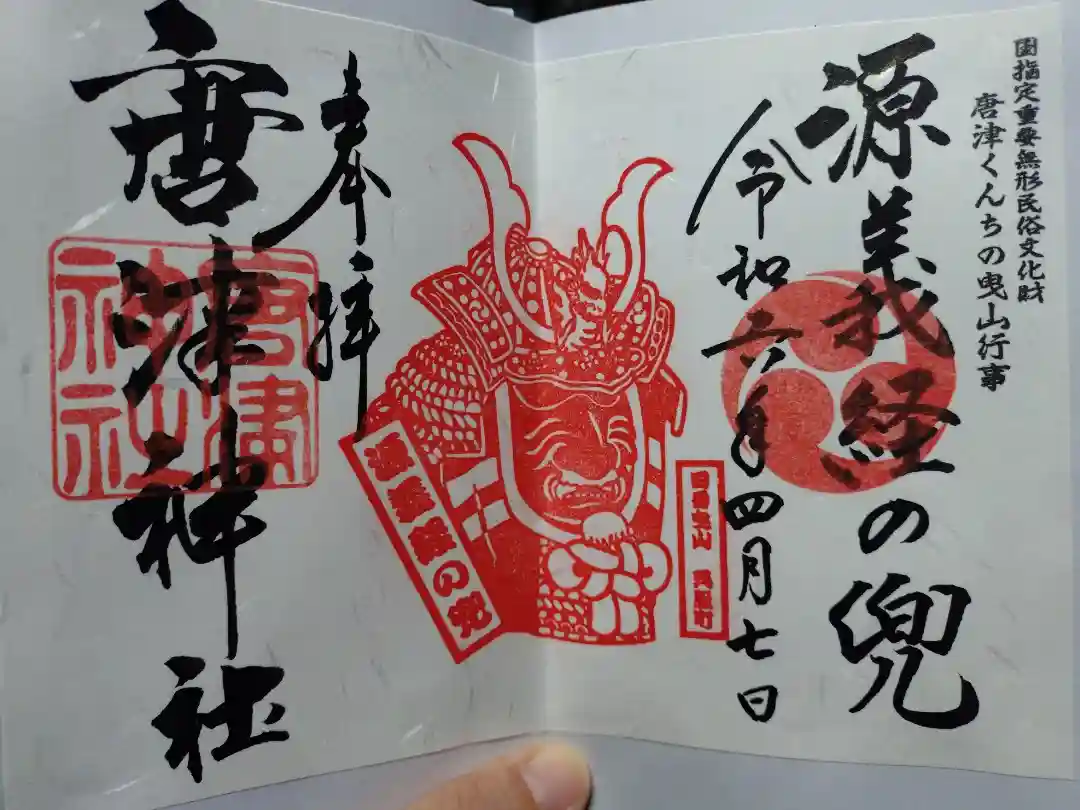 国指定重要無形民俗文化財
唐津くんちの曳山行事
源義経の兜
令和六年四月七日
四番曳山 呉服町
源義経の兜
奉拝
唐津神社
唐津
神社